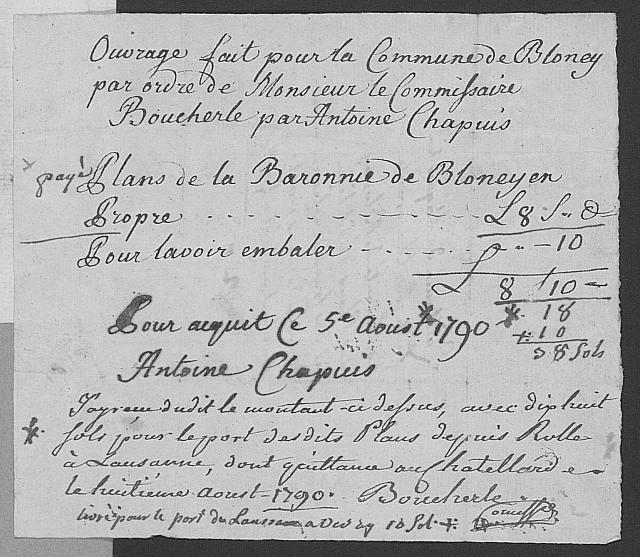 Ouvrage fait pour la Commune de Bloney
par ordre de Monsieur le Commissaire
Boucherle par Antoine Chapuis
payé Plans de la Baronnie de Bloney en
Propre . . . . . . . . . L 8 S „
Pour lavoir embaler . . . . „ — 10
L 8 10 —
Pour acquit Ce 5e Aoust * 1790 * 18
+ 10
38 Sols
Antoine Chapuis
J'ay reçu dudit le montant ci dessus, avec dixhuit
* sols pour le port desdits Plans depuis Rolle
à Lausanne, dont quittance au Chatellard
le huitième aoust 1790. Boucherle
livré pour le port du 18 Sol